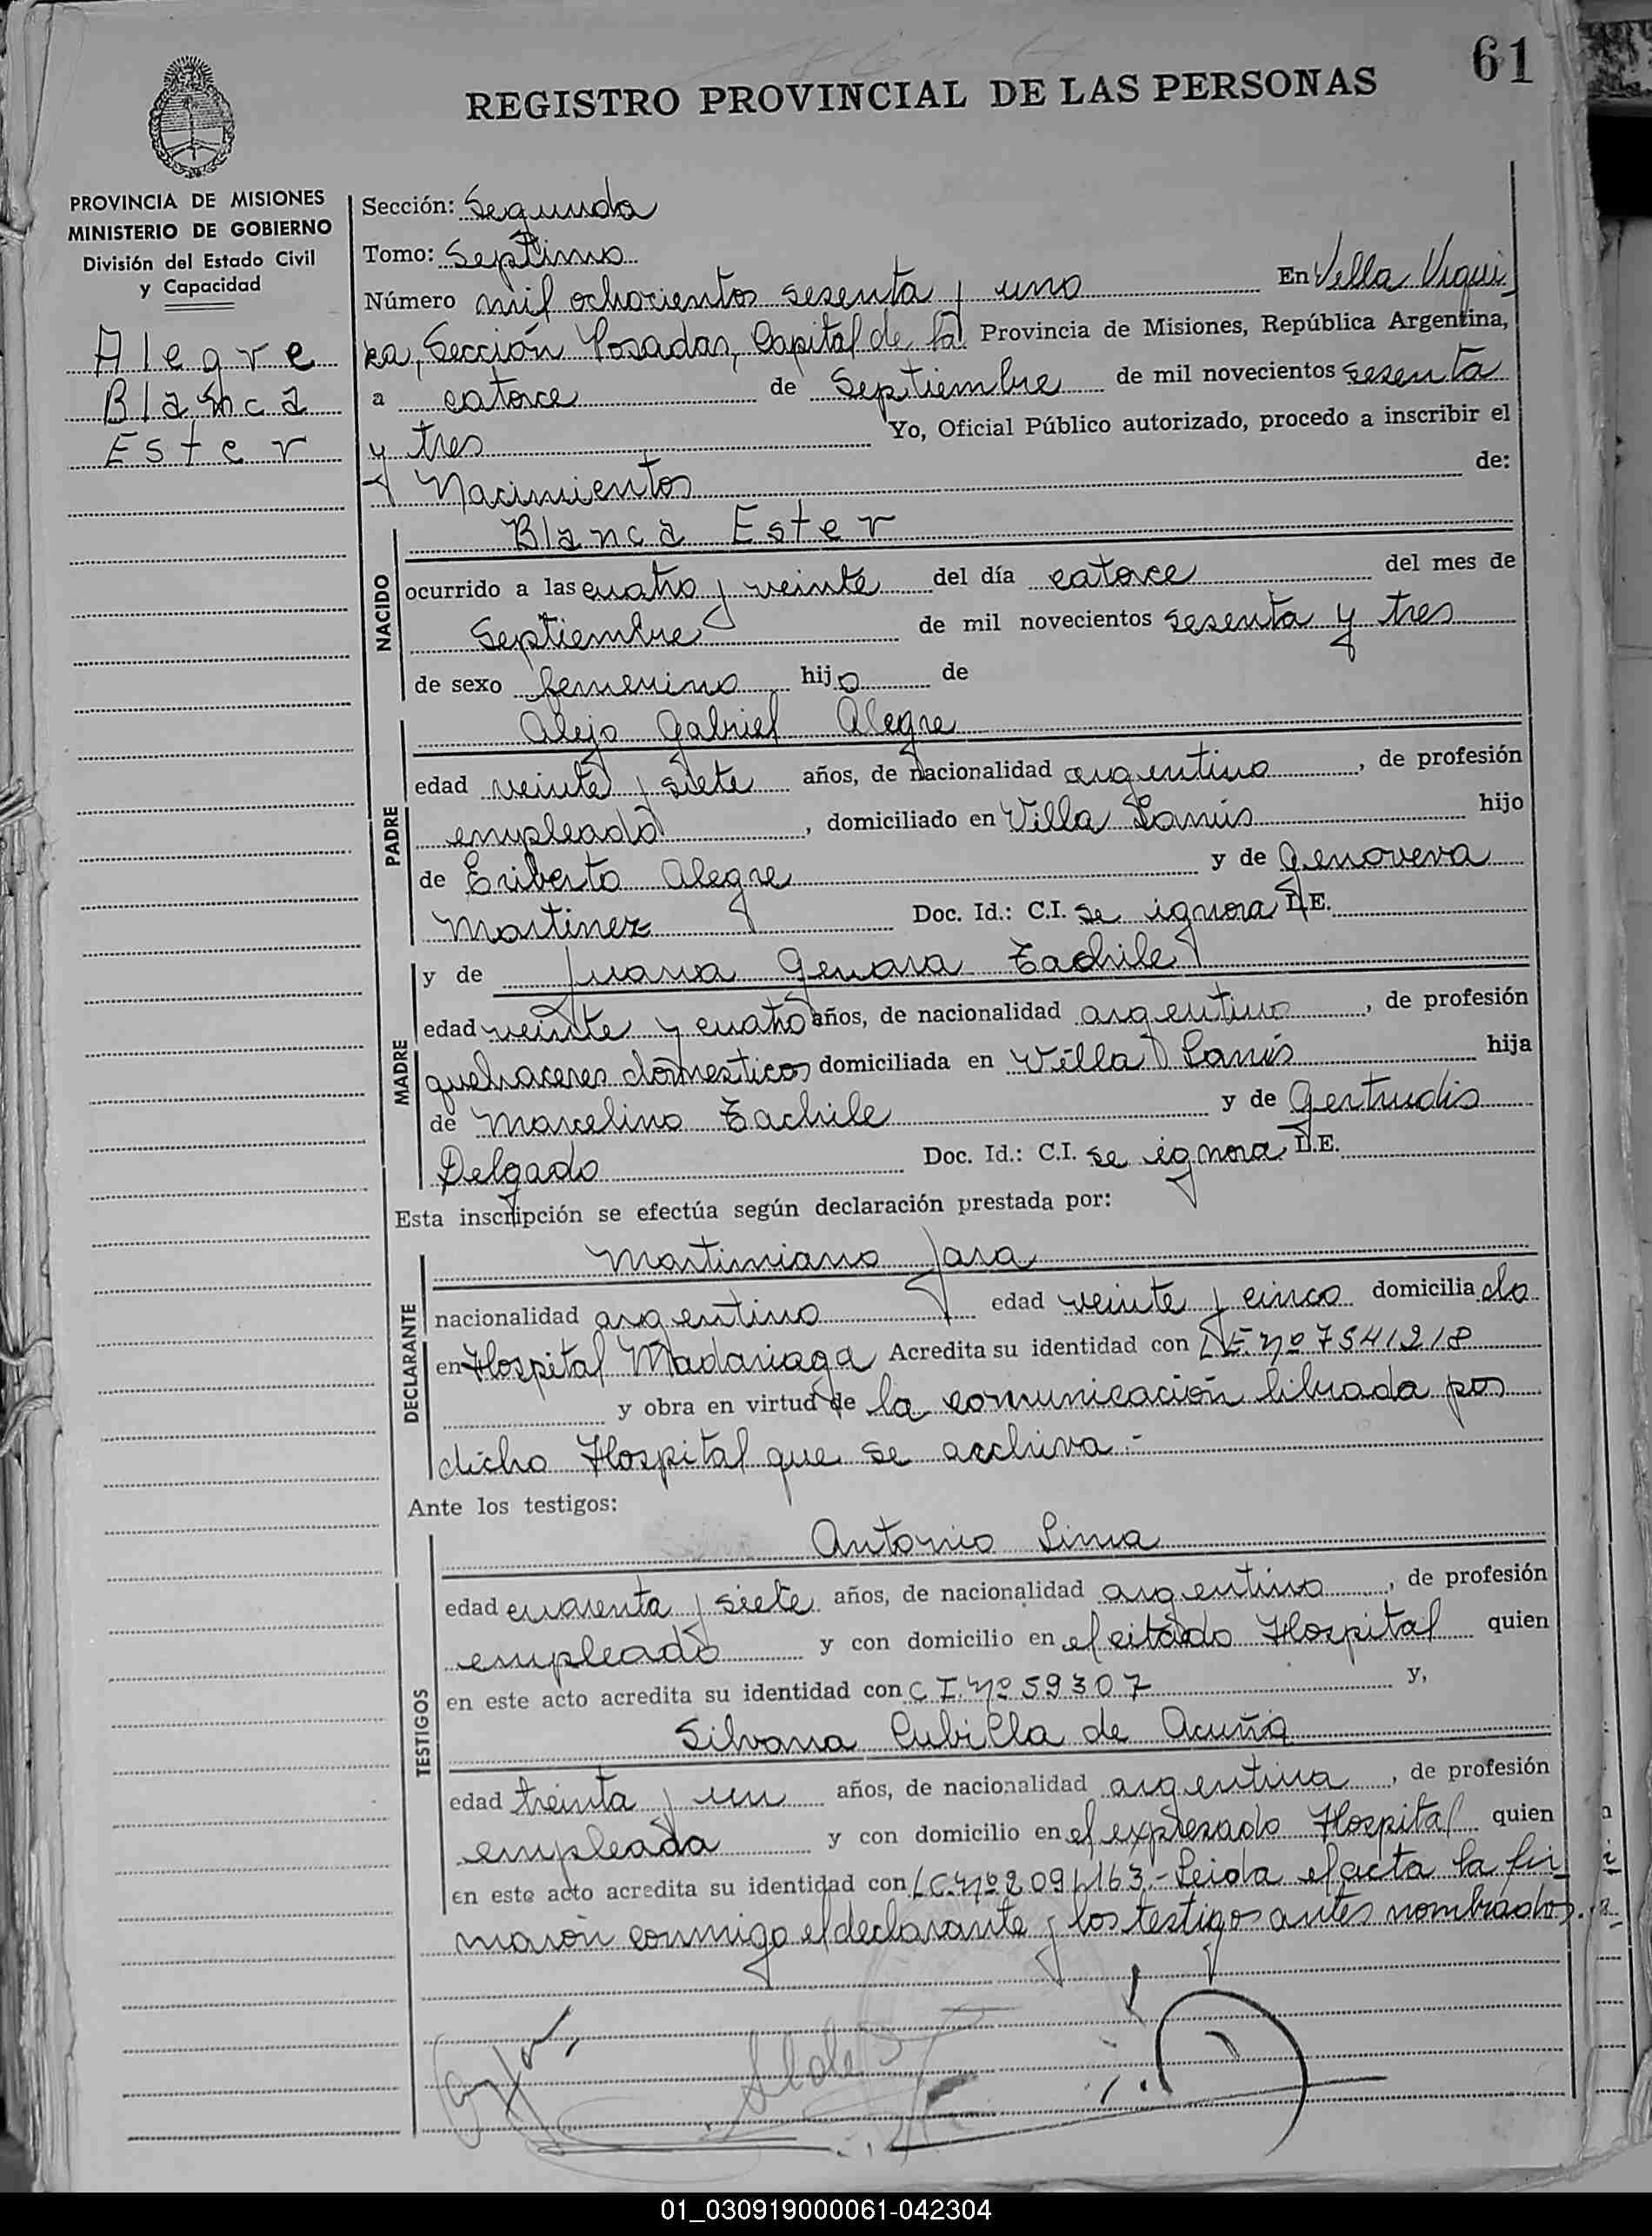 61
REGISTRO PROVINCIAL DE LAS PERSONAS
PROVINCIA DE MISIONES
MINISTERIO DE GOBIERNO
División del Estado Civil
y Capacidad
Alegre
Blanca
Ester
Sección: Segunda
Tomo: Septimo
Número mil ochocientos sesenta y uno En Villa Urqui
za, Sección Posadas, Capital de la Provincia de Misiones, República Argentina,
a catorce de Septiembre de mil novecientos sesenta
y tres Yo, Oficial Público autorizado, procedo a inscribir el
Nacimiento de:
NACIDO
Blanca Ester
ocurrido a las cuatro y veinte del día catorce del mes de
Septiembre de mil novecientos sesenta y tres
de sexo femenino hijo de
PADRE
Alejo Gabriel Alegre
edad veinte y siete años, de nacionalidad argentino, de profesión
empleado, domiciliado en Villa Lanús hijo
de Eriberto Alegre y de Genoveva
Martinez Doc. Id.: C.I. se ignora L.E.
MADRE
y de Juana Genara Tachile
edad veinte y cuatro años, de nacionalidad argentino, de profesión
quehaceres domesticos domiciliada en Villa Lanús hija
de Marcelino Tachile y de Gertrudis
Delgado Doc. Id.: C.I. se ignora L.E.
Esta inscripción se efectúa según declaración prestada por:
DECLARANTE
Martimiano Jara
nacionalidad argentino edad veinte y cinco domiciliado
en Hospital Madariaga Acredita su identidad con L.E. nº 7541218
y obra en virtud de la comunicación librada por
dicho Hospital que se archiva.-
Ante los testigos:
TESTIGOS
Antonio Lima
edad cuarenta y siete años, de nacionalidad argentino, de profesión
empleado y con domicilio en el citado Hospital quien
en este acto acredita su identidad con C I. nº 59307 y,
Silvana Cubilla de Acuña
edad treinta y un años, de nacionalidad argentina, de profesión
empleada y con domicilio en el expresado Hospital quien
en este acto acredita su identidad con L C. nº Leida el acta la fir
maron conmigo el declarante y los testigos antes nombrados.
01_030919000061-042304